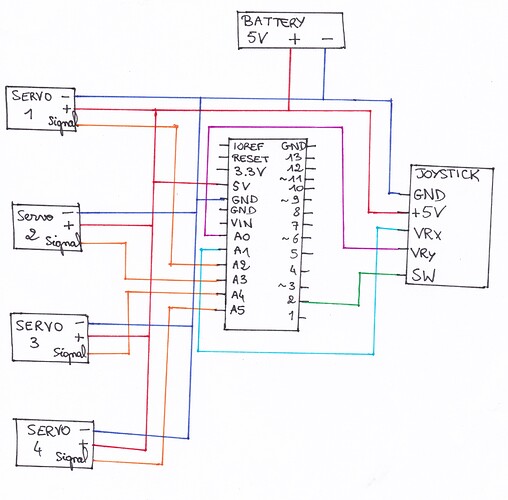 BATTERY
5V + -
SERVO -
1 +
Signal
Servo -
2 +
Signal
SERVO -
3 +
Signal
SERVO -
4 +
Signal
IOREF GND
RESET 13
3.3V 12
5V ~11
GND 10
GND ~9
VIN 8
A0 7
A1 ~6
A2 5
A3 4
A4 ~3
A5 2
1
JOYSTICK
GND
+5V
VRx
VRy
SW